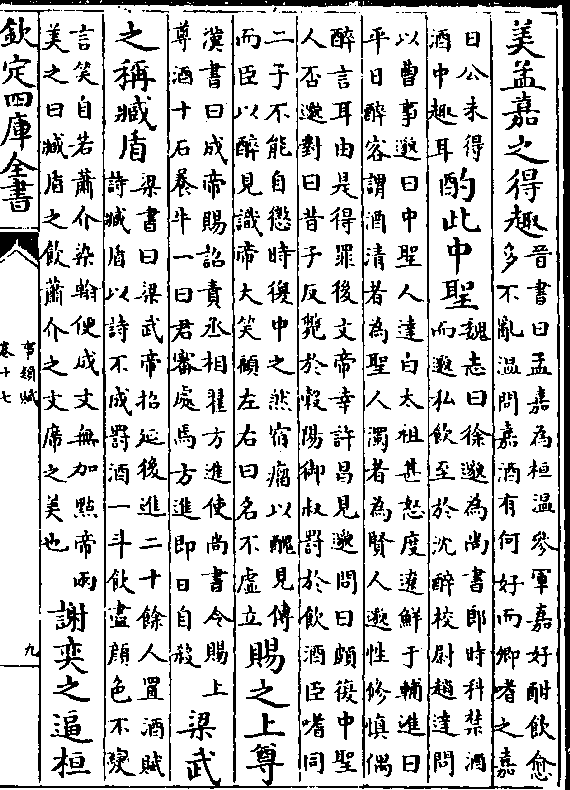 美孟嘉之得趣
晉書曰孟嘉為桓温參軍嘉好酣飲愈
多不亂温問嘉酒有何好而卿嗜之嘉
曰公未得
酒中趣耳
酌此中聖
魏志曰徐邈為尚書郎時科禁酒
而邈私飲至於沈醉校尉趙達問
以曹事邈曰中聖人達白太祖甚怒度遼鮮于輔進曰
平日醉客謂酒清者為聖人濁者為賢人邈性修慎偶
醉言耳由是得罪後文帝幸許昌見邈問曰頗復中聖
人否邈對曰昔子反斃於榖陽御叔罰於飲酒臣嗜同
二子不能自懲時復中之然宿瘤以醜見傳
而臣以醉見識帝大笑顧左右曰名不虛立
賜之上尊
漢書曰成帝賜詔責丞相翟方進使尚書令賜上
尊酒十石養牛一曰君審處焉方進即日自殺
梁武
之稱臧盾
梁書曰梁武帝招延後進二十餘人置酒賦
詩臧盾以詩不成罰酒一斗飲盡顔色不變
言笑自若蕭介染翰便成文無加點帝兩
美之曰臧盾之飲蕭介之文席之美也
謝奕之逼桓
欽定四庫全書
事類賦
卷十七
九